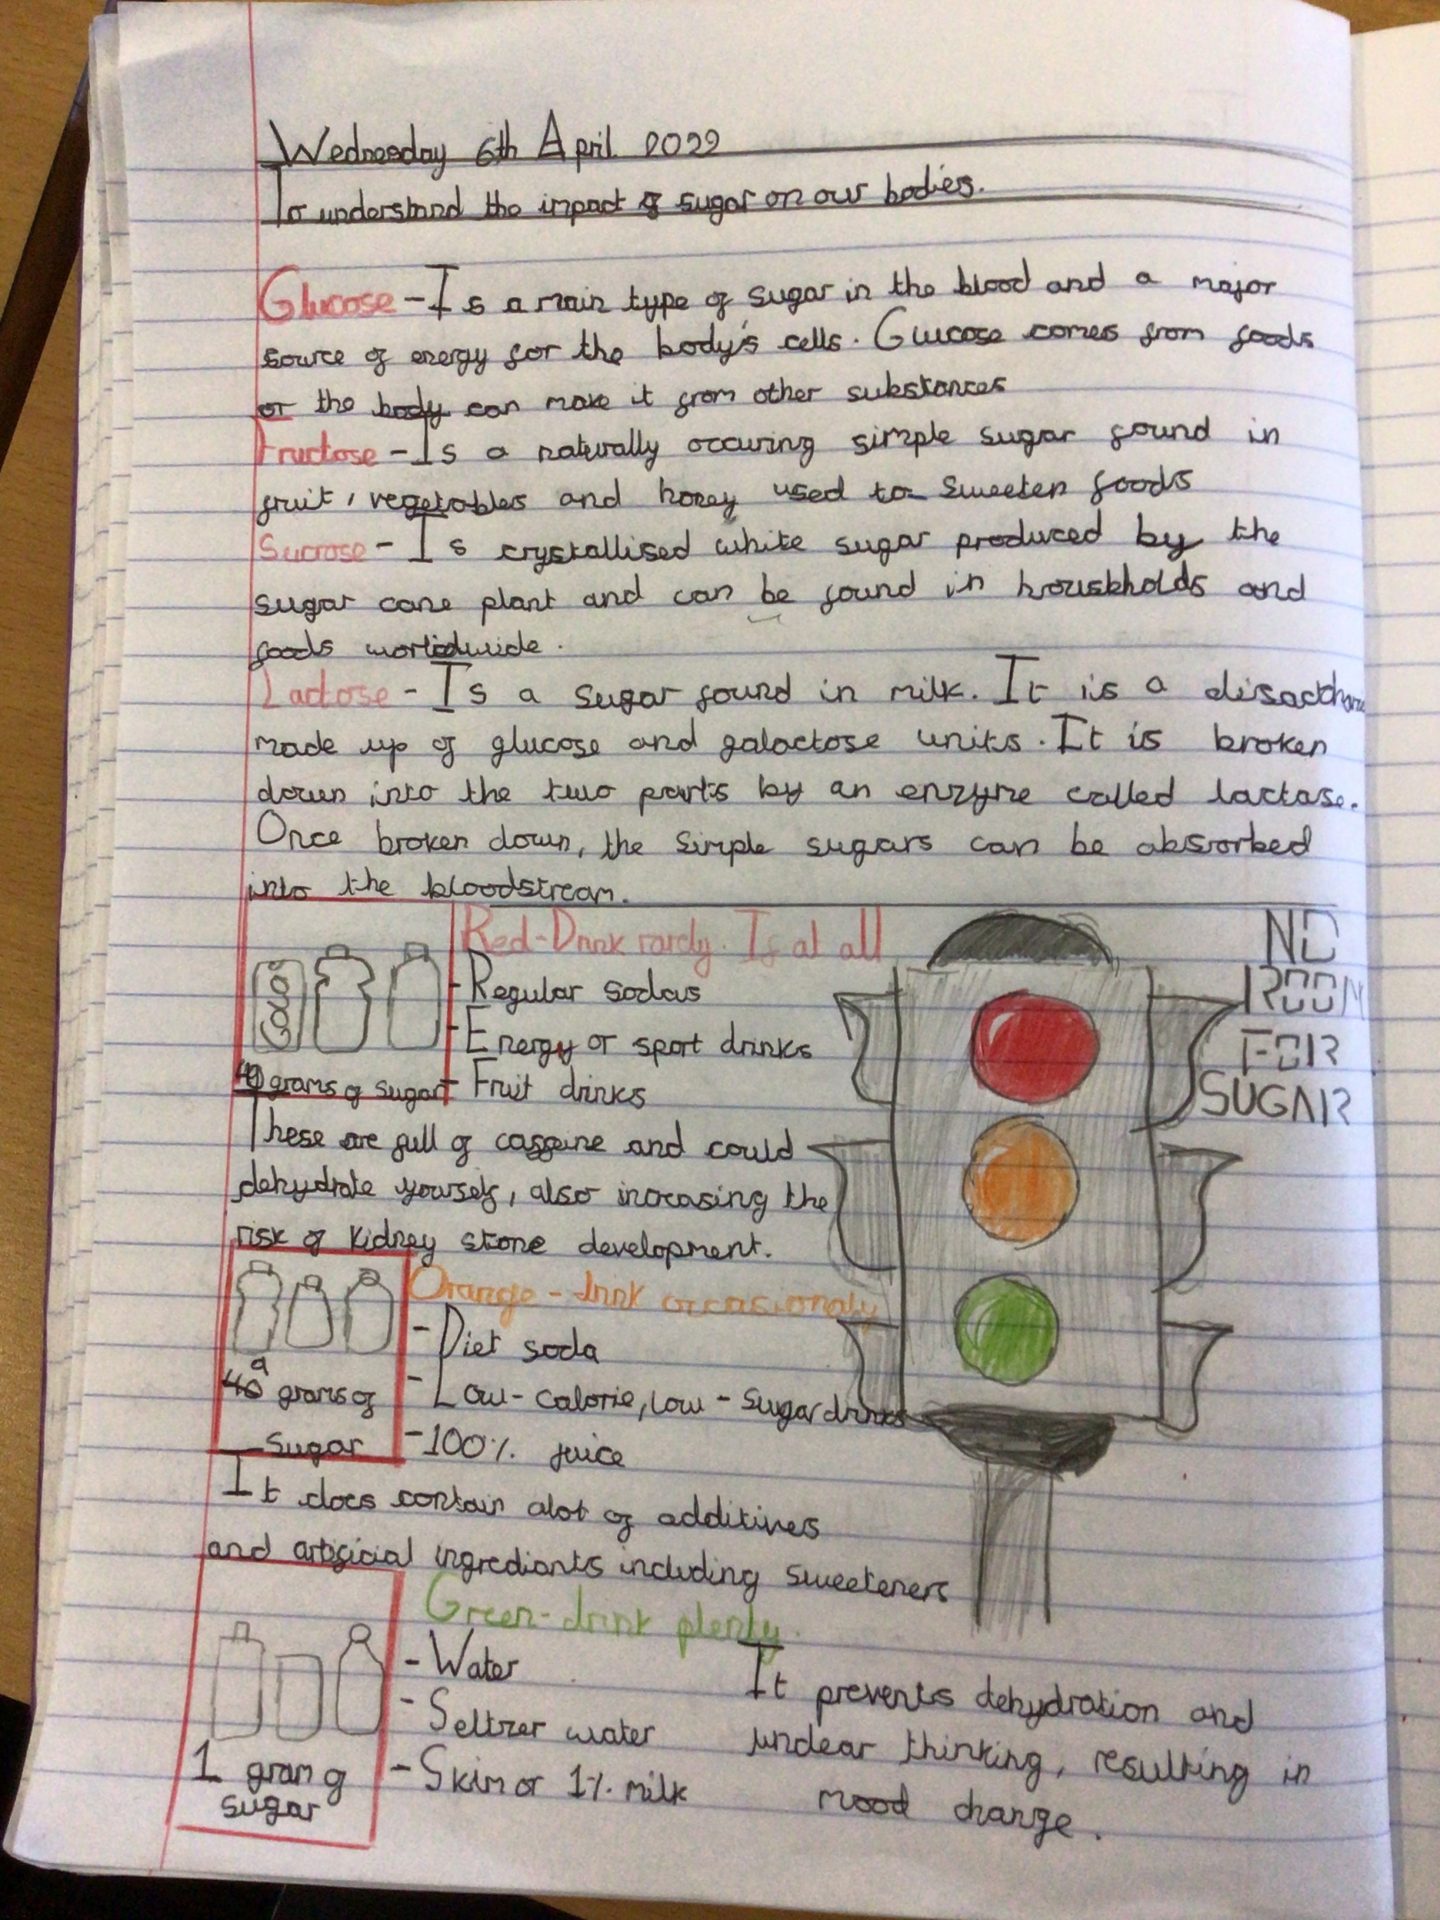 Wednesday 6th April 2022
To understand the impact of sugar on our bodies.
Glucose - Is a main type of sugar in the blood and a major
source of energy for the body's cells. Glucose comes from foods
or the body can make it from other substances
Fructose - Is a naturally occuring simple sugar found in
fruit, vegetables and honey used to sweeten foods
Sucrose - Is crystallised white sugar produced by the
sugar cane plant and can be found in households and
foods worldwide.
Lactose - Is a sugar found in milk. It is a
made up of glucose and galactose units. It is broken
down into the two parts by an enzyme called lactase.
Once broken down, the simple sugars can be absorbed
into the bloodstream.
Red-Drink rarely. If at all
- Regular sodas
- Energy or sport drinks
- Fruit drinks
40 grams of sugar
These are full of caffeine and could
dehydrate yourself, also increasing the
risk of kidney stone development.
NO
ROOM
FOR
SUGAR
Orange - drink occasionaly
- Diet soda
- Low-calorie, low-sugar drinks
- 100% juice
grams of
sugar
It does contain alot of additives
and artificial ingrediants including sweeteners
Green-drink plenty.
- Water
- Seltzer water
- Skim or 1% milk
1 gram of
sugar
It prevents dehydration and
unclear thinking, resulting in
mood change.